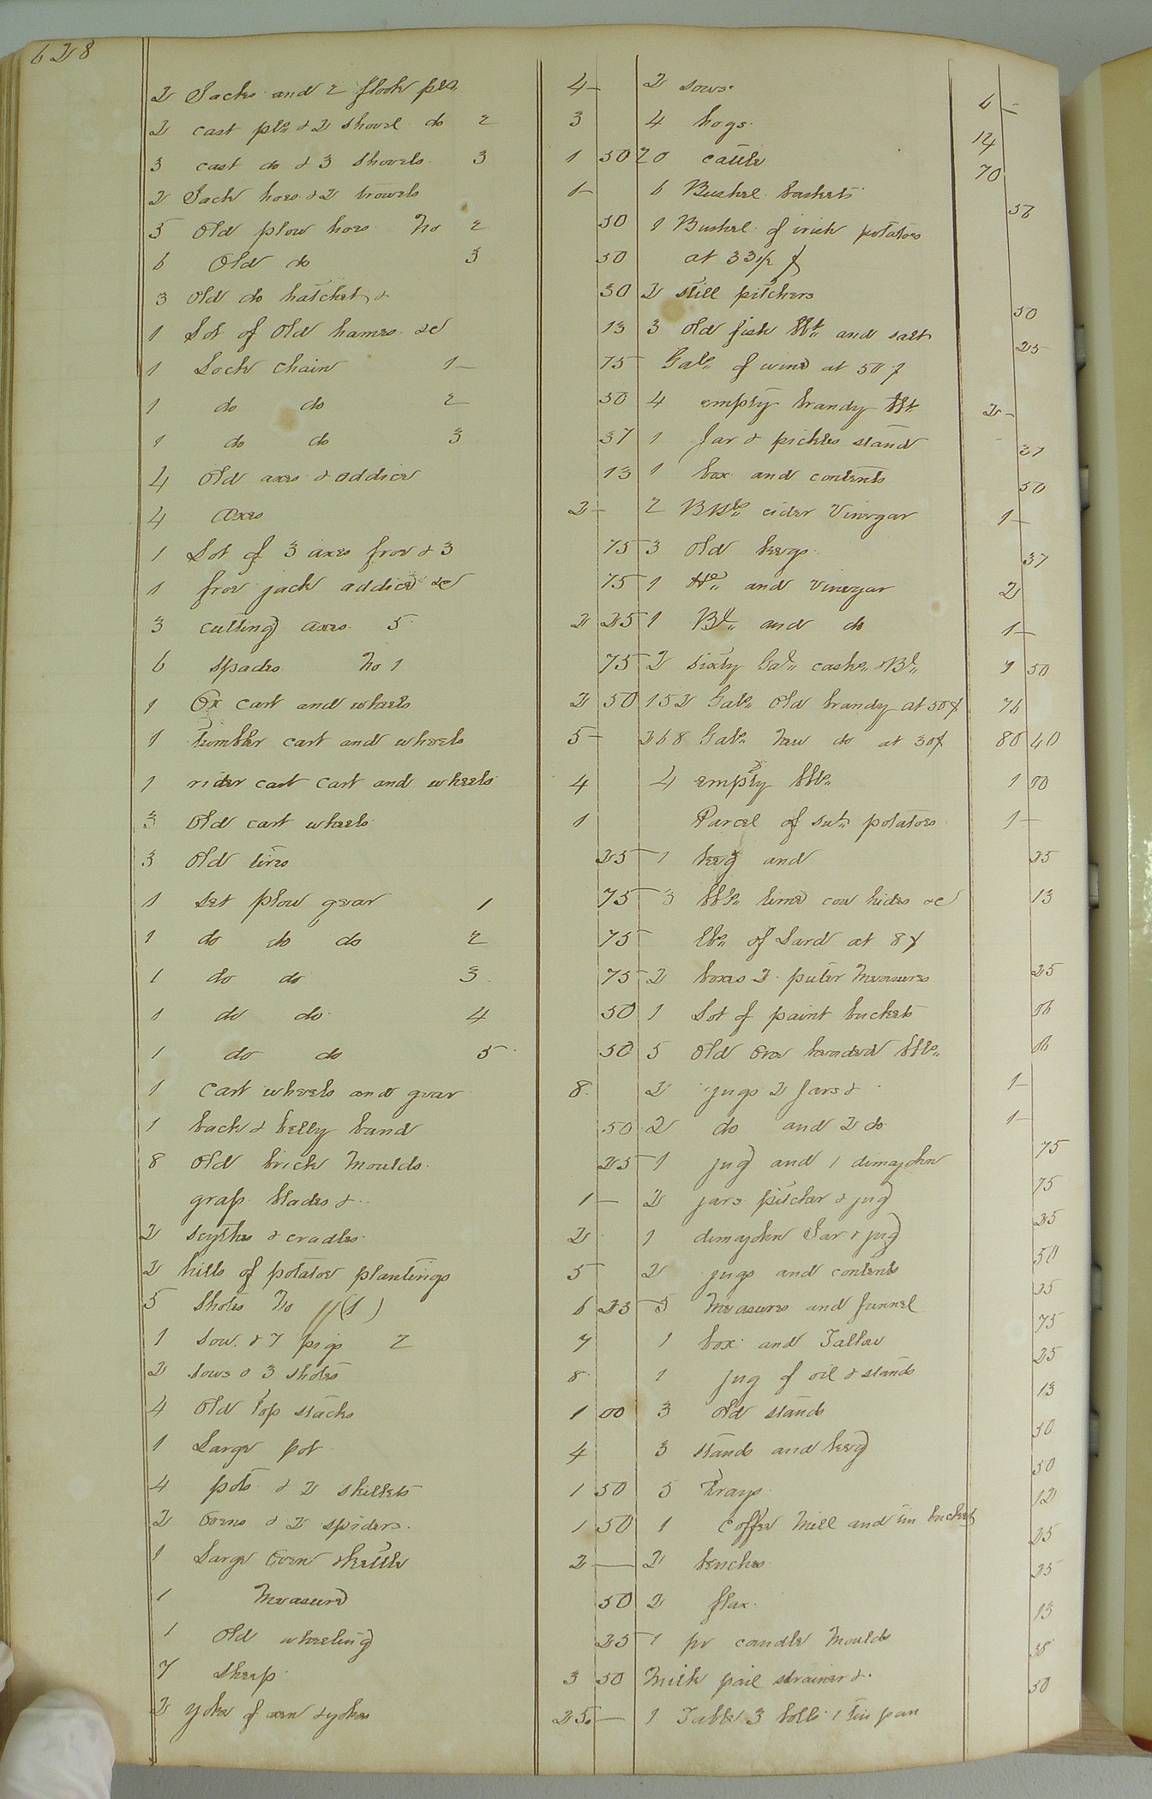 628
2 Sacks and 2 flook pls 4 -
2 cast pls & 2 shovel do 2 3
3 cast do & 3 Shovels 3 1 50
2 Sack hoes & 2 trowels 1 -
5 Old plow hoes No 2 50
6 Old do 3 50
3 Old do hatchet & 30
1 Lot of Old hames &c 13
1 Lock Chain 1 - 75
1 do do 2 50
1 do do 3 37
4 Old axes & addice 13
4 axes 2 -
1 Lot of 3 axes frow & 3 75
1 frow jack addice &c 75
3 cutting axes 5 2 25
6 spades No 1 75
1 Ox cart and wheels 2 50
1 tumbler cart and wheels 5 -
1 rider cart cart and wheels 4
3 Old cart wheels 1
3 Old tires 25
1 set plow gear 1 75
1 do do do 2 75
1 do do 3 75
1 do do 4 50
1 do do 5 50
1 cart wheels and gear 8
1 back & belly band 50
8 Old brick moulds 25
grass blades & 1 -
2 scythes & cradles 2
2 hills of potatoe plantings 5
5 Shotes No (1) 6 25
1 Sow & 7 pigs 2 7
2 sows & 3 shotes 8
4 Old top stacks 1 00
1 Large pot 4
4 pots & 2 skillets 1 50
2 ovens & 2 spiders 1 50
1 Large oven & kettle 2 -
1 Measure 50
1 Old wheeling 25
7 sheep 3 50
2 yoke of oxen & yokes 25 -
2 sows 6 -
4 hogs 14
20 cattle 70
6 Bushel baskets 56
1 Bushel of irish potatoes
at 33 1/2 ¢
2 still pitchers 50
3 old fish bbls and salt 25
Gals of wine at 50 ¢
4 empty brandy bbls 2 -
1 Jar & pickles stand 37
1 box and contents 50
2 Bbls cider Vinegar 1 -
3 Old kegs 37
1 Hd and vinegar 2
1 Bl and do 1 -
2 sixty Gal casks & Bl 7 50
152 Gals Old brandy at 50¢ 76
268 Gals New do at 30¢ 80 40
4 empty bbls 1 00
Parcel of potatoes 1 -
1 keg and 25
3 bbls lime cow hides &c 13
lbs of Lard at 8¢
2 boxes 2 puter Measures 25
1 Lot of paint buckets 06
5 Old one headed bbls 06
2 jugs 2 Jars & 1 -
2 do and 2 do 1 -
1 jug and 1 dimajohn 75
2 jars pitcher & jug 75
1 dimajohn Jar & jug 25
2 jugs and contents 50
5 Measures and funnel 25
1 box and Tallow 75
1 jug of oil & stands 25
3 Old stands 13
3 stands and keg 50
5 Trays 50
1 Coffee Mill and tin bucket 12
2 benches 25
2 flax 25
1 pr candle Moulds 13
Milk pail strainer & 38
1 Table 3 1 tin pan 50